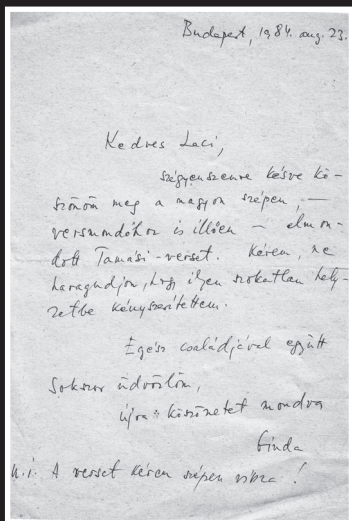 Budapest, 1984. aug. 23.
Kedves Laci,
szégyenszemre késve kö-
szönöm meg a nagyon szépen, —
versmondóhoz is illően — elmon-
dott Tamási-verset. Kérem, ne
haragudjon, hogy ilyen szokatlan hely-
zetbe kényszerítettem.
Egész családjával együtt
sokszor üdvözlöm,
újra köszönetet mondva
Ginda
U.i. A verset kérem szépen vissza!